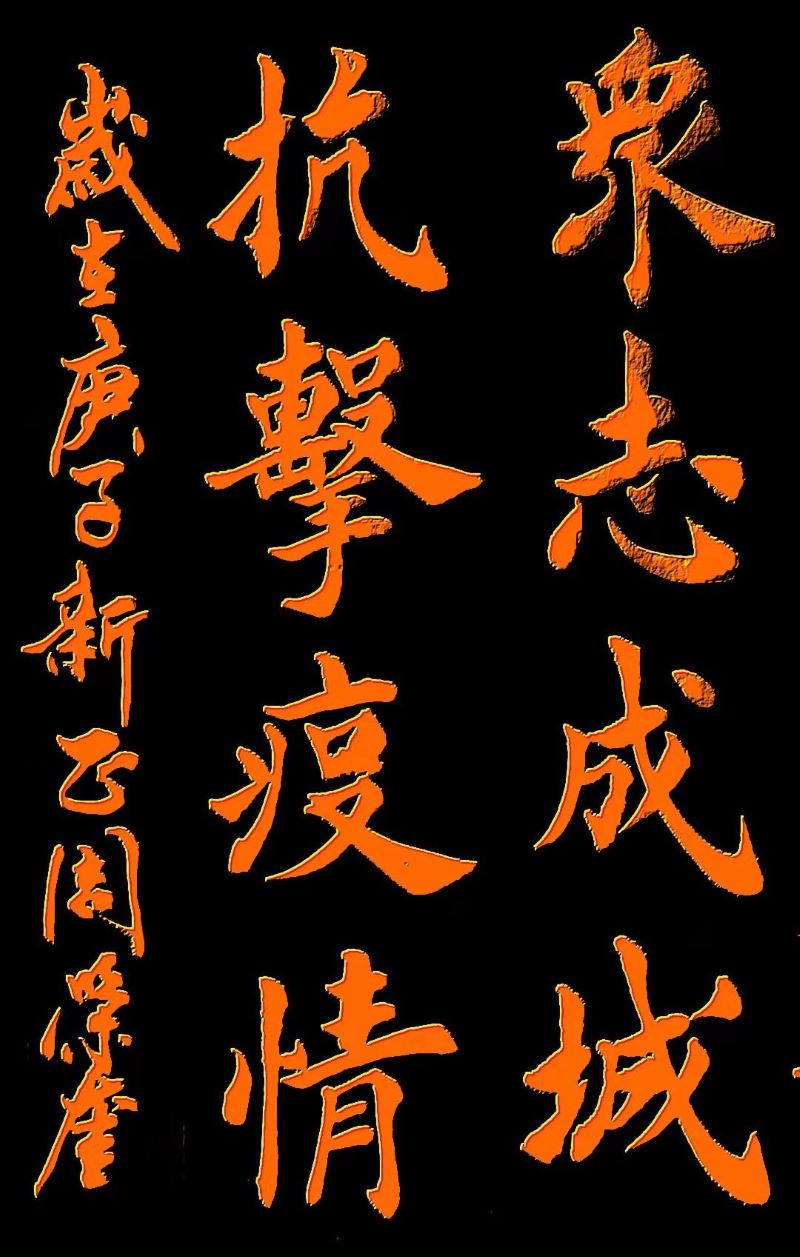 眾志成城
抗擊疫情
歲在庚子新正周保奎